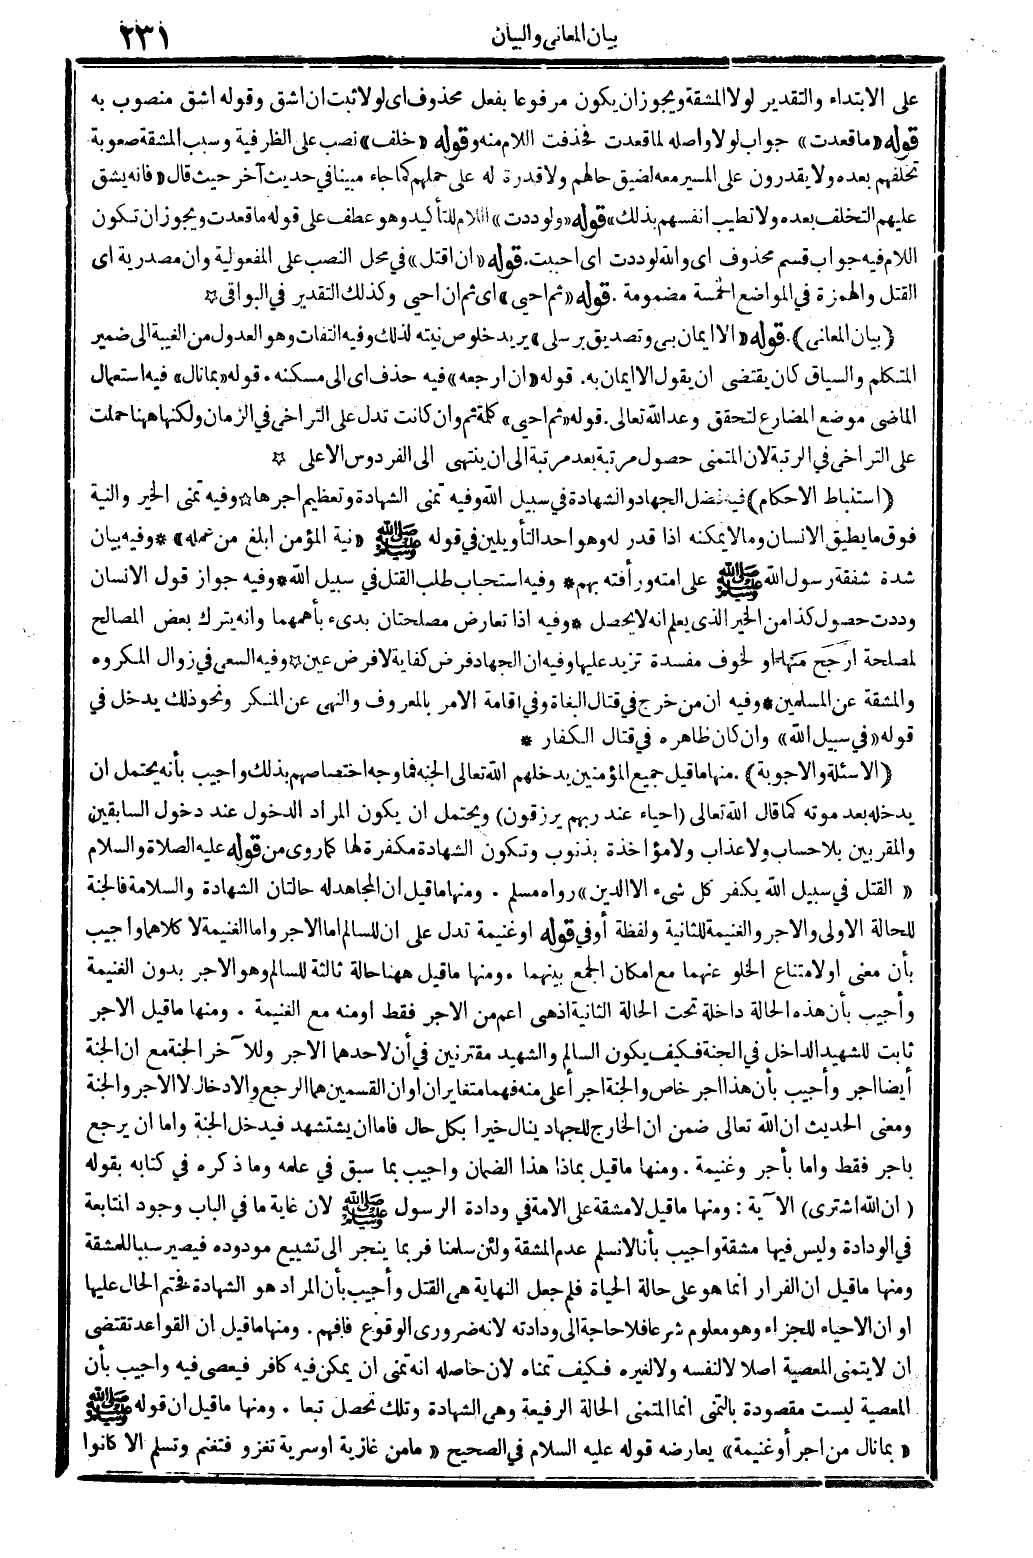 بيان المعانى والبيان
٢٣١
على الابتداء والتقدير لولا المشقة ويجوز ان يكون مرفوعا بفعل محذوف اى لولا ثبت ان اشق وقوله اشق منصوب به
قوله «ما قعدت» جواب لولا واصله لما قعدت فحذفت اللام منه وقوله «خلف» نصب على الظرفية وسبب المشقة صعوبة
تخلفهم بعده ولا يقدرون على المسير معه لضيق حالهم ولا قدرة له على حملهم كما جاء مبينا فى حديث آخر حيث قال «فانه يشق
عليهم التخلف بعده ولا تطيب انفسهم بذلك» قوله «ولوددت» اللام للتأكيد وهو عطف على قوله ما قعدت ويجوز ان تكون
اللام فيه جواب قسم محذوف اى والله لوددت اى احببت. قوله «ان اقتل» فى محل النصب على المفعولية وان مصدرية اى
القتل والهمزة فى المواضع الخمسة مضمومة . قوله «ثم احيى» اى ثم ان احيى وكذلك التقدير فى البواقى☆
(بيان المعانى). قوله «الا ايمان بى وتصديق برسلى» يريد خلوص نيته لذلك وفيه التفات وهو العدول من الغيبة الى ضمير
المتكلم والسياق كان يقتضى ان يقول الا ايمان به. قوله «ان ارجعه» فيه حذف اى الى مسكنه . قوله «بما نال» فيه استعمال
الماضى موضع المضارع لتحقق وعد الله تعالى. قوله «ثم احيى» كلمة ثم وان كانت تدل على التراخى فى الزمان ولكنها ههنا حملت
على التراخى فى الرتبة لان المتمنى حصول مرتبة بعد مرتبة الى ان ينتهى الى الفردوس الاعلى ☆
(استنباط الاحكام) فيه فضل الجهاد والشهادة فى سبيل الله وفيه تمنى الشهادة وتعظيم اجرها☆وفيه تمنى الخير والنية
فوق ما يطيق الانسان وما لا يمكنه اذا قدر له وهو احد التأويلين فى قوله ﷺ «نية المؤمن ابلغ من عمله» *وفيه بيان
شدة شفقة رسول الله ﷺ على امته ورأفته بهم* وفيه استحباب طلب القتل فى سبيل الله*وفيه جواز قول الانسان
وددت حصول كذا من الخير الذى يعلم انه لا يحصل *وفيه اذا تعارض مصلحتان بدىء بأهمهما وانه يترك بعض المصالح
لمصلحة ارجح منها او لخوف مفسدة تزيد عليها وفيه ان الجهاد فرض كفاية لا فرض عين☆وفيه السعى فى زوال المكروه
والمشقة عن المسلمين*وفيه ان من خرج فى قتال البغاة وفى اقامة الامر بالمعروف والنهى عن المنكر ونحو ذلك يدخل فى
قوله «فى سبيل الله» وان كان ظاهره فى قتال الكفار *
(الاسئلة والاجوبة) .منها ما قيل جميع المؤمنين يدخلهم الله تعالى الجنة فما وجه اختصاصهم بذلك واجيب بأنه يحتمل ان
يدخله بعد موته كما قال الله تعالى (احياء عند ربهم يرزقون) ويحتمل ان يكون المراد الدخول عند دخول السابقين
والمقربين بلا حساب ولا عذاب ولا مؤاخذة بذنوب وتكون الشهادة مكفرة لها كما روى من قوله عليه الصلاة والسلام
« القتل فى سبيل الله يكفر كل شىء الا الدين» رواه مسلم . ومنها ما قيل ان المجاهد له حالتان الشهادة والسلامة فالجنة
للحالة الاولى والاجر والغنيمة للثانية ولفظة أو فى قوله او غنيمة تدل على ان للسالم اما الاجر واما الغنيمة لا كلاهما واجيب
بأن معنى او لامتناع الخلو عنهما مع امكان الجمع بينهما .ومنها ما قيل ههنا حالة ثالثة للسالم وهو الاجر بدون الغنيمة
وأجيب بأن هذه الحالة داخلة تحت الحالة الثانية اذ هى اعم من الاجر فقط او منه مع الغنيمة . ومنها ما قيل الاجر
ثابت للشهيد الداخل فى الجنة فكيف يكون السالم والشهيد مقترنين فى أن لاحدهما الاجر وللآخر الجنة مع ان الجنة
أيضا اجر وأجيب بأن هذا اجر خاص والجنة اجر أعلى منه فهما متغايران او ان القسمين هما الرجع والادخال لا الاجر والجنة
ومعنى الحديث ان الله تعالى ضمن ان الخارج للجهاد ينال خيرا بكل حال فاما ان يشتشهد فيدخل الجنة واما ان يرجع
باجر فقط واما بأجر وغنيمة .ومنها ما قيل بماذا هذا الضمان واجيب بما سبق فى علمه وما ذكره فى كتابه بقوله
(ان الله اشترى) الآية : ومنها ما قيل لا مشقة على الامة فى ودادة الرسول ﷺ لان غاية ما فى الباب وجود المتابعة
فى الودادة وليس فيها مشقة واجيب بأنا لا نسلم عدم المشقة ولئن سلمنا فربما ينجر الى تشييع مودوده فيصير سببا للمشقة
ومنها ما قيل ان الفرار انما هو على حالة الحياة فلم جعل النهاية هى القتل وأجيب بأن المراد هو الشهادة فختم الحال عليها
او ان الاحياء للجزاء وهو معلوم شرعا فلا حاجة الى ودادته لانه ضرورى الوقوع فافهم . ومنها ما قيل ان القواعد تقتضى
ان لا يتمنى المعصية اصلا لا لنفسه ولا لغيره فكيف تمناه لان حاصله انه تمنى ان يمكن فيه كافر فيعصى فيه واجيب بأن
المعصية ليست مقصودة بالتمنى انما المتمنى الحالة الرفيعة وهى الشهادة وتلك تحصل تبعا . ومنها ما قيل ان قوله ﷺ
« بما نال من اجر أو غنيمة» يعارضه قوله عليه السلام فى الصحيح « ما من غازية او سرية تغزو فتغنم وتسلم الا كانوا